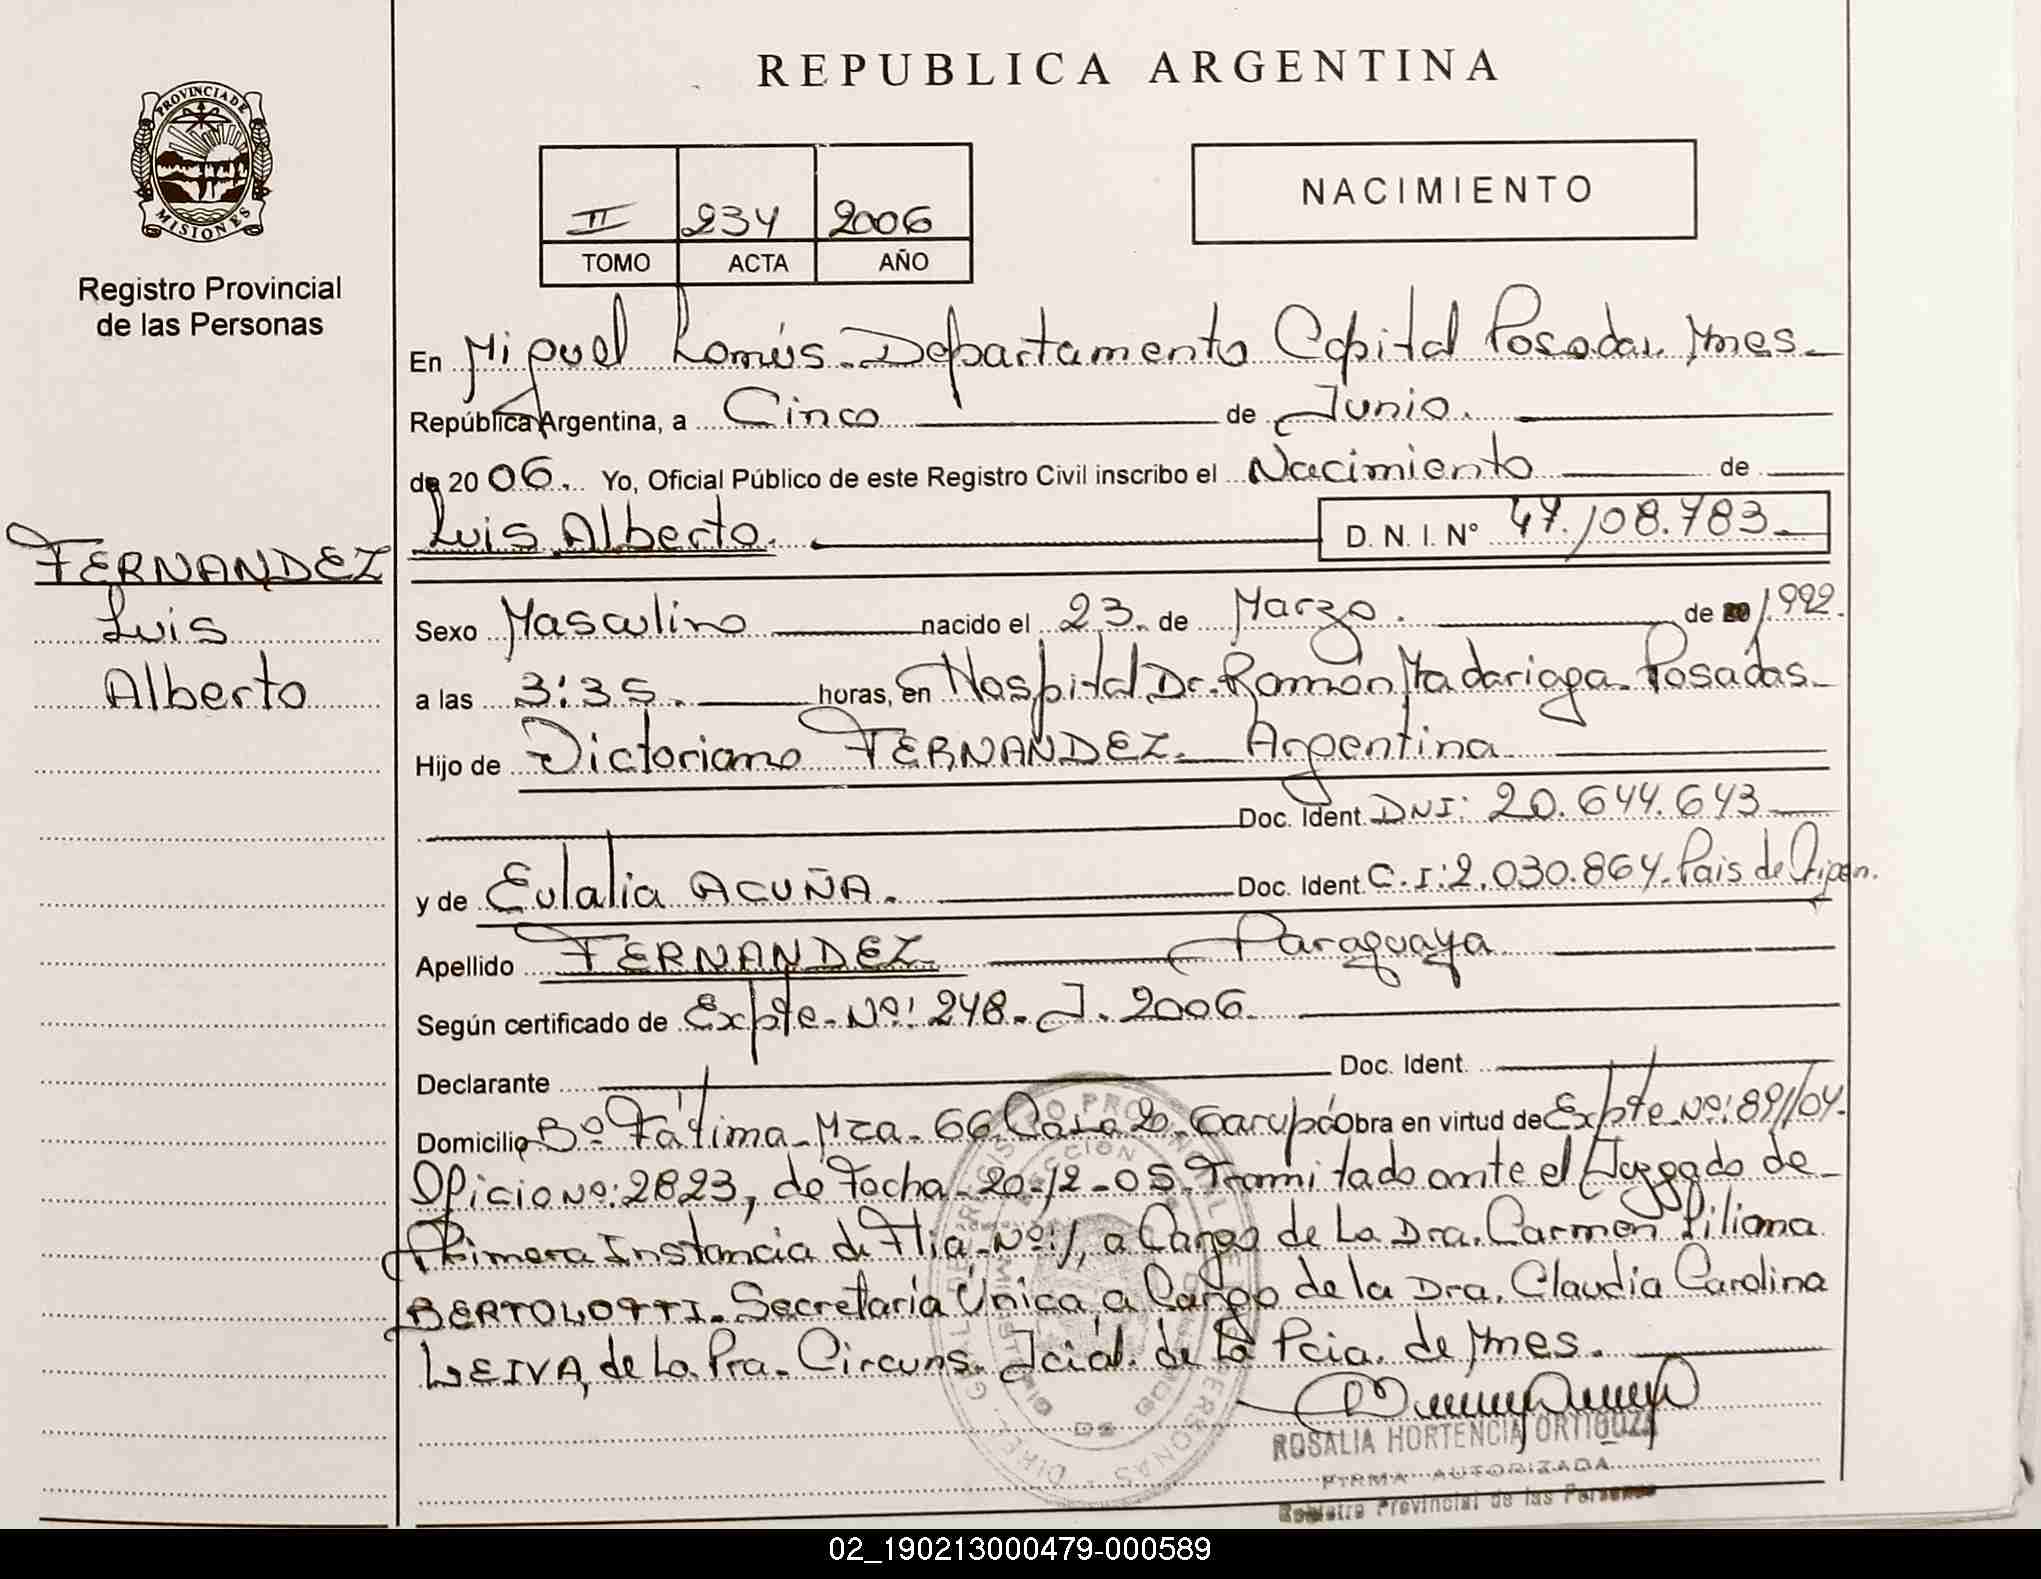 REPUBLICA ARGENTINA
PROVINCIA DE
MISIONES
Registro Provincial
de las Personas
II 234 2006
TOMO ACTA AÑO
NACIMIENTO
En Miguel Lanús. Departamento Capital Posadas. Mnes.
República Argentina, a Cinco de Junio.
de 2006. Yo, Oficial Público de este Registro Civil inscribo el Nacimiento de
Luis Alberto. D. N. I. Nº 47.108.783.
FERNANDEZ
Luis
Alberto
Sexo Masculino nacido el 23. de Marzo. de 1992.
a las 3:35. horas, en Hospital Dr. Ramón Madariaga. Posadas.
Hijo de Victoriano FERNANDEZ. Argentina
Doc. Ident. DNI: 20.644.643
y de Eulalia ACUÑA. Doc. Ident. C.I: 2.030.864. Pais de Origen.
Apellido FERNANDEZ Paraguaya
Según certificado de Expte. Nº: 248. J. 2006
Declarante Doc. Ident.
Domicilio Bº Fátima. Mza. 66 Casa 20. Garupá Obra en virtud de Expte. Nº: 891/04.
Oficio Nº: 2823, de fecha 20-12-05. Tramitado ante el Juzgado de
Primera Instancia de Flia. Nº: 1, a Cargo de La Dra. Carmen Liliana
BERTOLOTTI. Secretaría Única a Cargo de la Dra. Claudia Carolina
LEIVA, de La Pra. Circuns. Jcial. de La Pcia. de Mnes.
ROSALIA HORTENCIA ORTIGOZA
FIRMA AUTORIZADA
Registro Provincial de las Personas
02_190213000479-000589